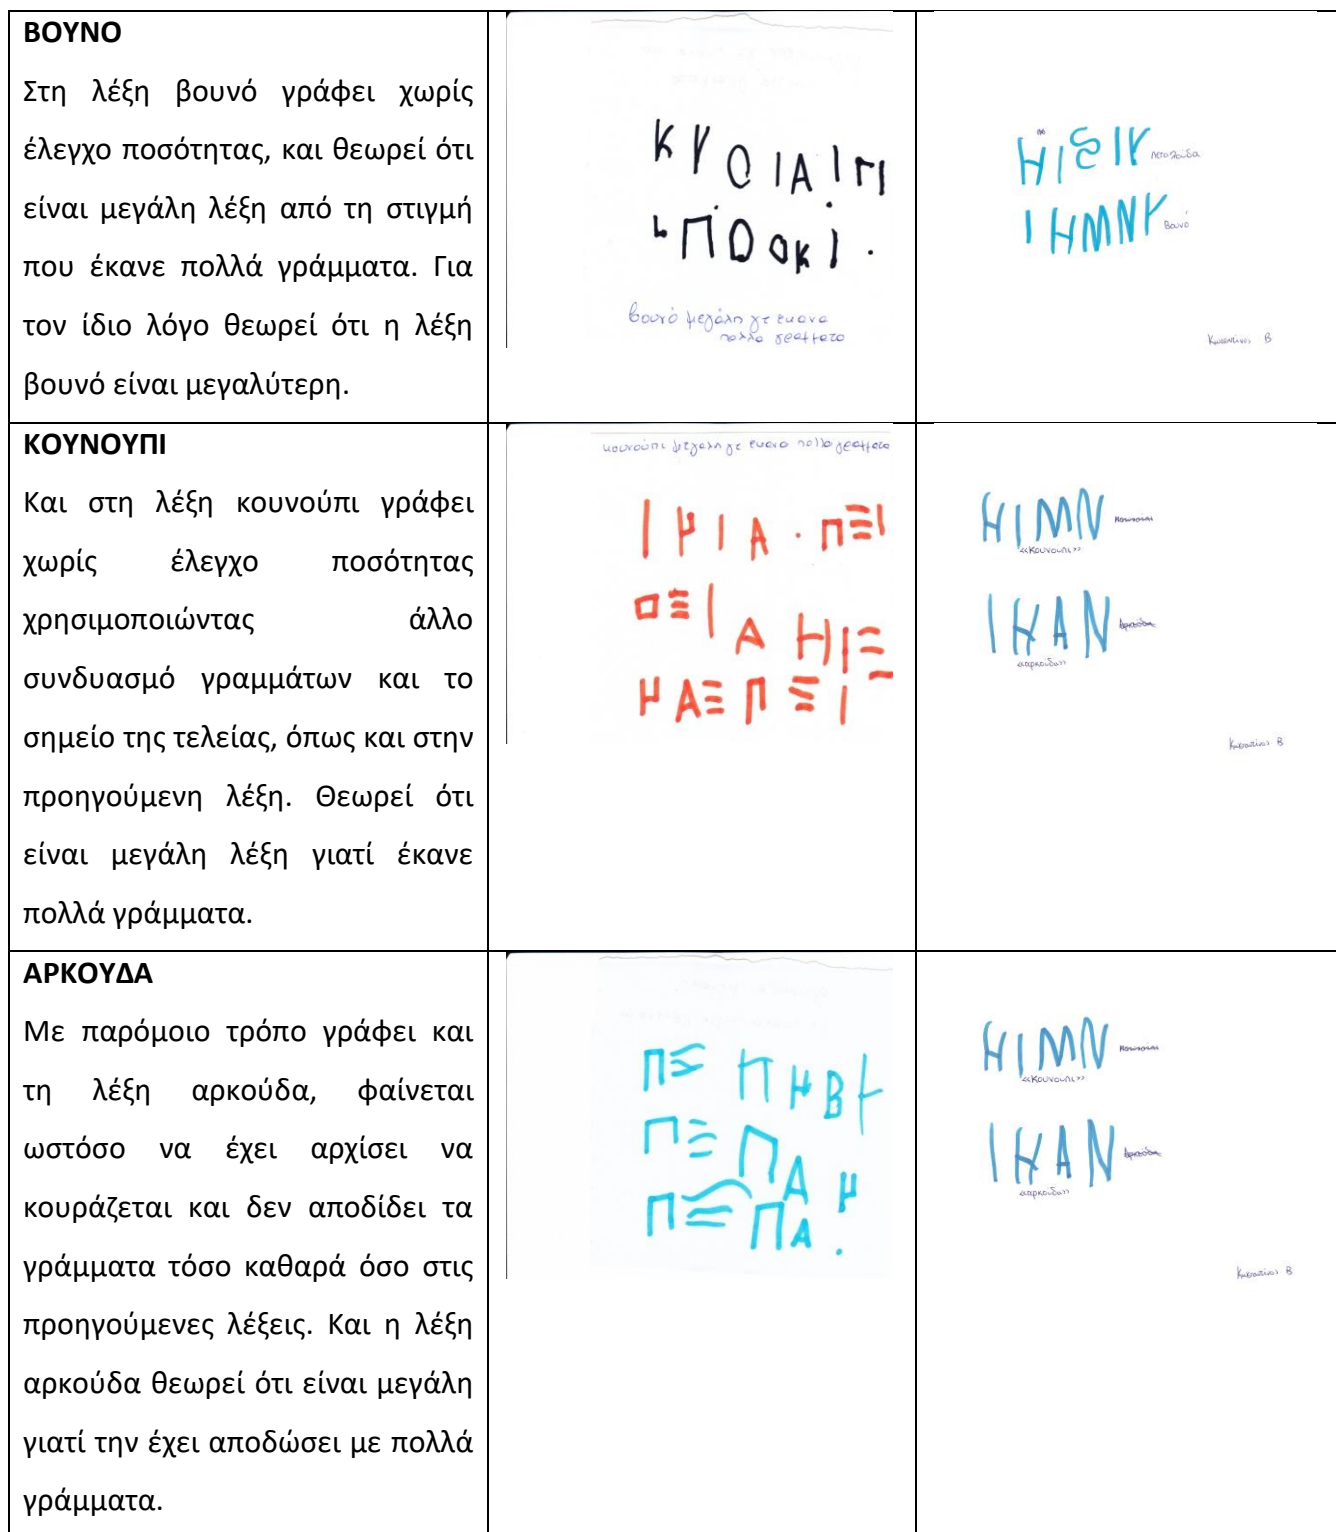 ΒΟΥΝΟ
Στη λέξη βουνό γράφει χωρίς
έλεγχο ποσότητας, και θεωρεί ότι
είναι μεγάλη λέξη από τη στιγμή
που έκανε πολλά γράμματα. Για
τον ίδιο λόγο θεωρεί ότι η λέξη
βουνό είναι μεγαλύτερη.
βουνό μεγάλη γτ έκανα
πολλά γράμματα
Βουνό
ΚΟΥΝΟΥΠΙ
Και στη λέξη κουνούπι γράφει
χωρίς έλεγχο ποσότητας
χρησιμοποιώντας άλλο
συνδυασμό γραμμάτων και το
σημείο της τελείας, όπως και στην
προηγούμενη λέξη. Θεωρεί ότι
είναι μεγάλη λέξη γιατί έκανε
πολλά γράμματα.
κουνούπι μεγάλη γτ έκανα πολλά γράμματα
ΗΙΜΝ
«Κουνούπι»
ΙΚΑΝ
«αρκούδα»
ΑΡΚΟΥΔΑ
Με παρόμοιο τρόπο γράφει και
τη λέξη αρκούδα, φαίνεται
ωστόσο να έχει αρχίσει να
κουράζεται και δεν αποδίδει τα
γράμματα τόσο καθαρά όσο στις
προηγούμενες λέξεις. Και η λέξη
αρκούδα θεωρεί ότι είναι μεγάλη
γιατί την έχει αποδώσει με πολλά
γράμματα.
ΗΙΜΝ
«Κουνούπι»
ΙΚΑΝ
«αρκούδα»